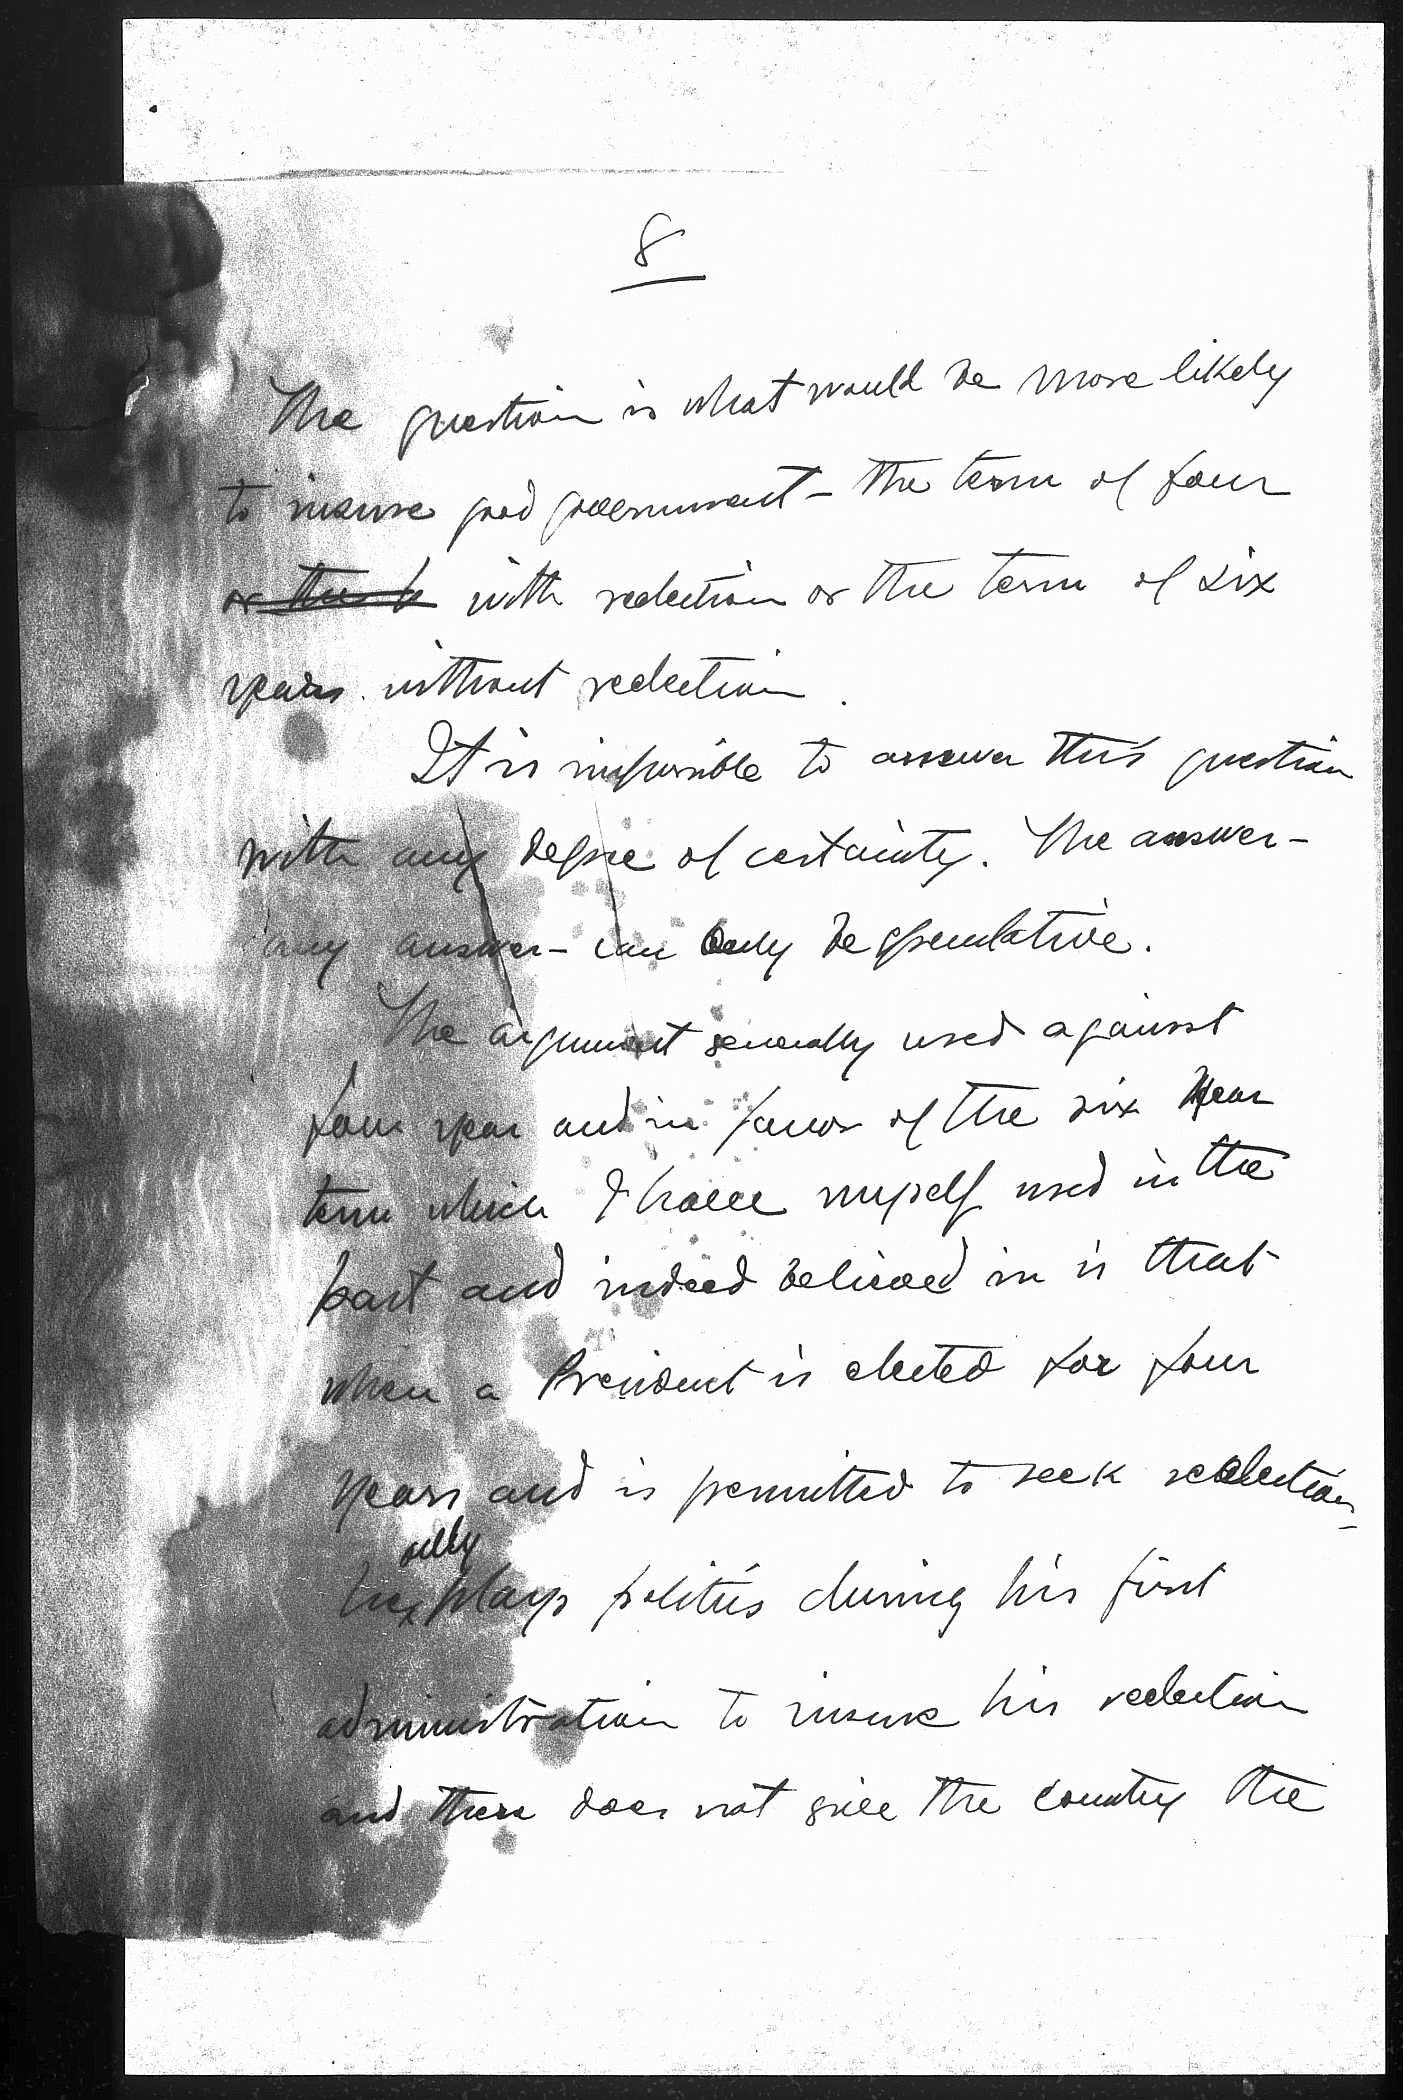 8
The question is what would be more likely
to insure good government – the term of four
or the with reelection or the term of six
years without reelection.
It is impossible to answer this question
with any degree of certainty. The answer –
any answer – can only be speculative.
The argument generally used against
four year and in favor of the six year
term which I have myself used in the
past and indeed believed in is that
when a President is elected for four
years and is permitted to seek reelection –
only
he plays politics during his first
administration to insure his reelection
and does not give the country the